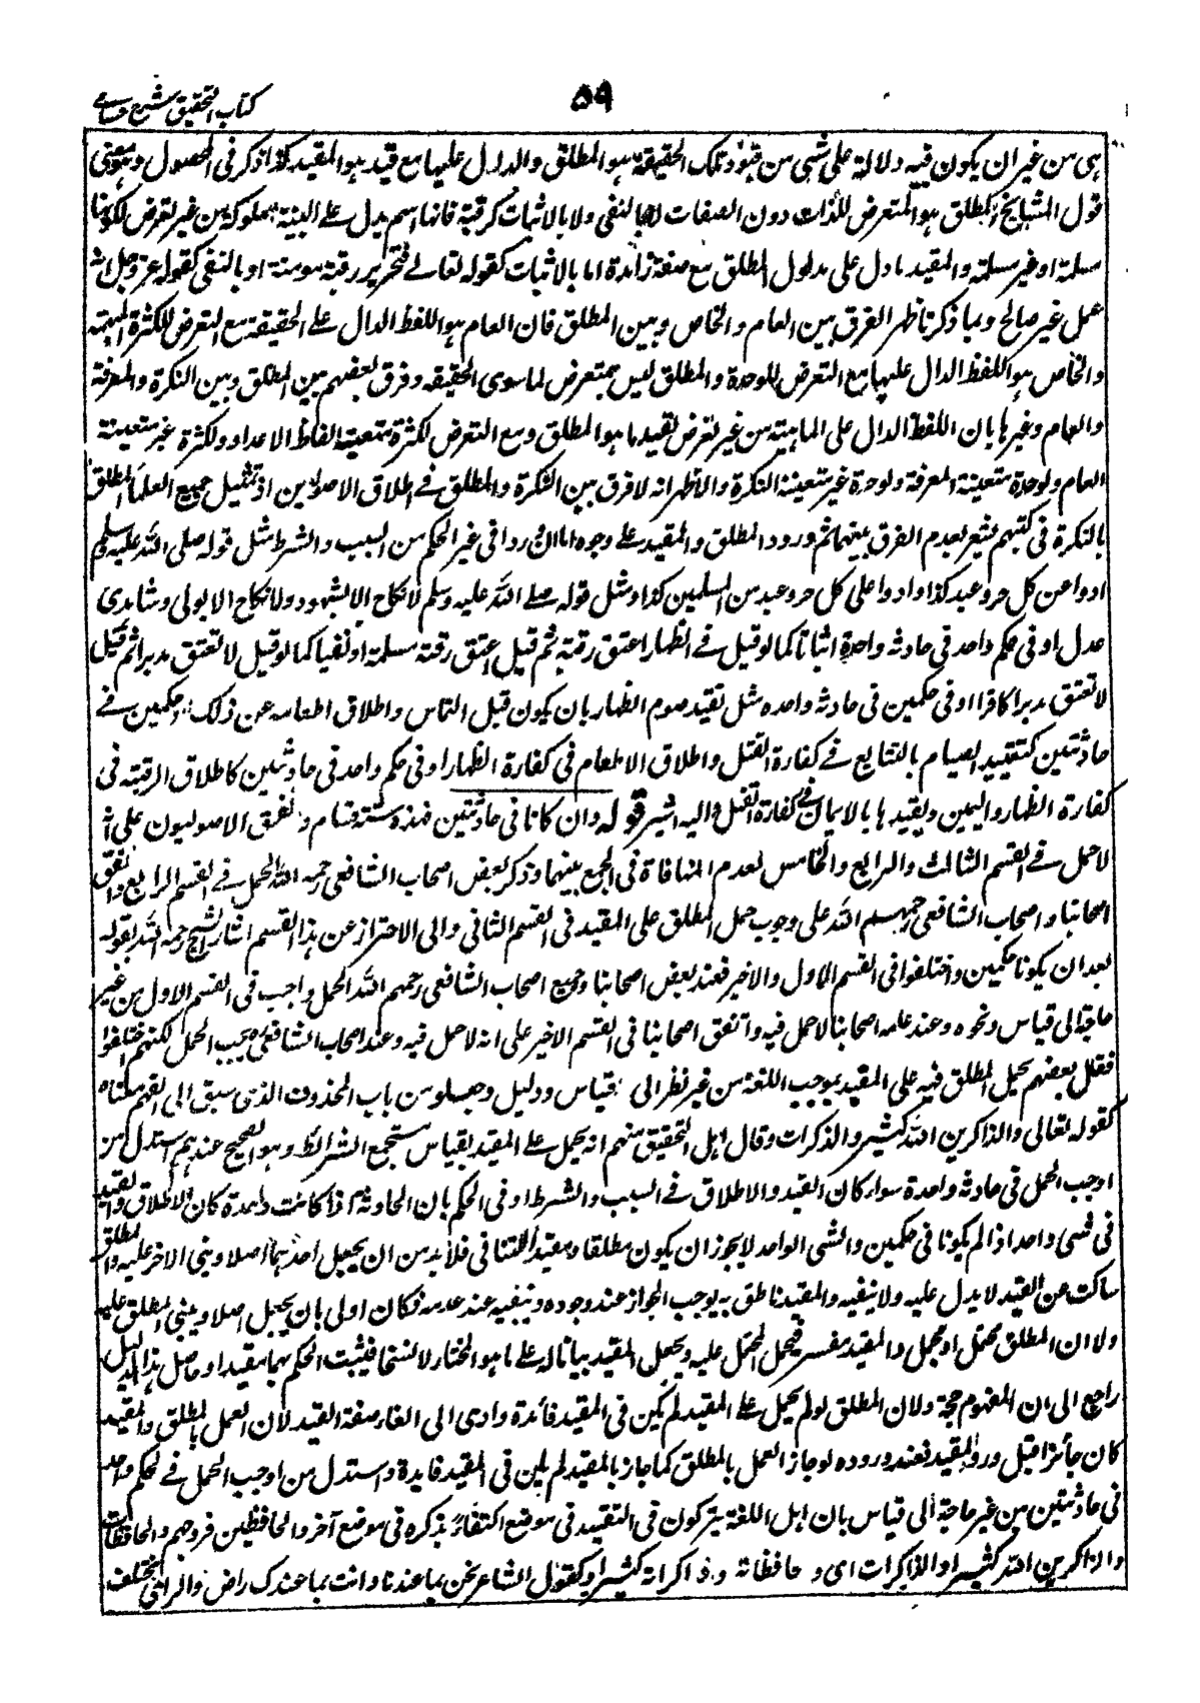 كتاب التحقيق شرح حسامى
٥٩
هى من غير ان يكون فيه دلالة على شئ من قيود تلك الحقيقة هو المطلق والدال عليها مع قيد هو المقيد كذا ذكر فى المحصول وهو معنى
قول المشايخ المطلق هو المتعرض للذات دون الصفات لا بالنفى ولا بالاثبات كرقبة فانها اسم يدل على البنية مملوكة من غير تعرض لكونها
مسلمة او غير مسلمة والمقيد ما دل على مدلول المطلق مع صفة زائدة اما بالاثبات كقوله تعالى فتحرير رقبة مومنة او بالنفى كقوله عز وجل انه
عمل غير صالح وبما ذكرنا ظهر الفرق بين العام والخاص وبين المطلق فان العام هو اللفظ الدال على الحقيقة مع التعرض للكثرة المبهمة
والخاص هو اللفظ الدال عليها مع التعرض للوحدة والمطلق ليس بمتعرض لما سوى الحقيقة وفرق بعضهم بين المطلق وبين النكرة والمعرفة
والعام وغيرها بان اللفظ الدال على الماهية من غير تعرض لقيد ما هو المطلق ومع التعرض لكثرة متعينة الفاظ الاعداد ولكثرة غير متعينة
العام ولوحدة متعينة المعرفة ولوحدة غير متعينة النكرة والاظهر انه لا فرق بين النكرة والمطلق فى اطلاق الاصوليين اذ تمثيل جميع العلماء المطلق
بالنكرة فى كتبهم مشعر بعدم الفرق بينهما ثم ورود المطلق والمقيد على وجوه اما ان وردا فى غير الحكم من السبب والشرط مثل قوله صلى الله عليه وسلم
ادوا عن كل حر وعبد كذا وادوا على كل حر وعبد من المسلمين كذا ومثل قوله صلى الله عليه وسلم لا نكاح الا بشهود ولا نكاح الا بولى وشاهدى
عدل او فى حكم واحد فى حادثة واحدة اثباتا كما لو قيل فى الظهار اعتق رقبة ثم قيل اعتق رقبة مسلمة او نفيا كما لو قيل لا تعتق مدبرا ثم قيل
لا تعتق مدبرا كافرا او فى حكمين فى حادثة واحدة مثل تقييد صوم الظهار بان يكون قبل التماس واطلاق اطعامه عن ذلك او حكمين فى
حادثتين كتقييد الصيام بالتتابع فى كفارة القتل واطلاق الاطعام فى كفارة الظهار او فى حكم واحد فى حادثتين كاطلاق الرقبة فى
كفارة الظهار واليمين وتقييدها بالايمان فى كفارة القتل واليه اشير قوله وان كانا فى حادثتين فهذه ستة اقسام واتفق الاصوليون على انه
لا حمل فى القسم الثالث والرابع والخامس لعدم المنافاة فى الجمع بينهما وذكر بعض اصحاب الشافعى رحمه الله الحمل فى القسم الرابع واتفق
اصحابنا واصحاب الشافعى رحمهم الله على وجوب حمل المطلق على المقيد فى القسم الثانى والى الاحتراز عن هذا القسم اشار الشيخ رحمه الله بقوله
بعد ان يكونا حكمين واختلفوا فى القسم الاول والاخير فعند بعض اصحابنا وجميع اصحاب الشافعى رحمهم الله الحمل واجب فى القسم الاول من غير
حاجة الى قياس ونحوه وعند عامة اصحابنا لا حمل فيه واتفق اصحابنا فى القسم الاخير على انه لا حمل فيه وعند اصحاب الشافعى يجب الحمل لكنهم اختلفوا
فقال بعضهم يحمل المطلق فيه على المقيد بموجب اللغة من غير نظر الى قياس ودليل وجعلوه من باب المحذوف الذى سبق الى الفهم معناه
كقوله تعالى والذاكرين الله كثيرا والذاكرات وقال اهل التحقيق منهم انه يحمل على المقيد بقياس مستجمع الشرائط وهو الصحيح عندهم استدل من
اوجب الحمل فى حادثة واحدة سواء كان القيد والاطلاق فى السبب والشرط او فى الحكم بان الحادثة اذا كانت واحدة كان الاطلاق والتقييد
فى شئ واحد اذا لم يكونا فى حكمين والشئ الواحد لا يجوز ان يكون مطلقا ومقيدا للتنافى فلا بد من ان يجعل احدهما اصلا ويبنى الاخر عليه والمطلق
ساكت عن القيد لا يدل عليه ولا ينفيه والمقيد ناطق به يوجب الجواز عند وجوده وينفيه عند عدمه فكان اولى بان يجعل اصلا ويبنى المطلق عليه
ولان المطلق محتمل او مجمل والمقيد مفسر فيحمل المحتمل عليه ويجعل المقيد بيانا له على ما هو المختار لا نسخا فيثبت الحكم بهما مقيدا وحاصل هذا الدليل
راجع الى ان المفهوم حجة ولان المطلق لو لم يحمل على المقيد لم يكن فى المقيد فائدة وادى الى الغاء صفة القيد لان العمل بالمطلق والمقيد
كان جائزا قبل ورود المقيد فعند وروده لو جاز العمل بالمطلق كما جاز بالمقيد لم يكن فى المقيد فايدة واستدل من اوجب الحمل فى حكم واحد
فى حادثتين من غير حاجة الى قياس بان اهل اللغة يتركون فى التقييد فى موضع اكتفاء بذكره فى موضع آخر والحافظين فروجهم والحافظات
والذاكرين الله كثيرا والذاكرات اى وحافظاته وذاكراته كثيرا وكقول الشاعر نحن بما عندنا وانت بما عندك راض والراى مختلف